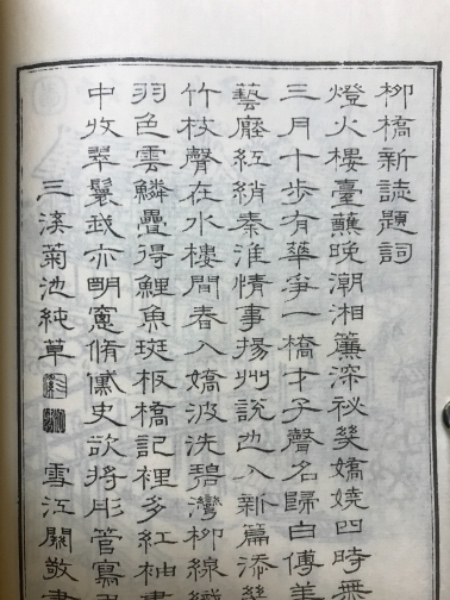 柳橋新誌題詞
燈火樓臺蘸晚潮湘簾深祕幾嬌嬈四時無
三月十步有華爭一橋才子聲名歸白傅美
藝壓紅綃秦淮情事揚州說也入新篇添幾
竹枝聲在水樓間春入嬌波洗碧灣柳線織
羽色雲鱗疊得鯉魚斑板橋記裡多紅袖畫
中收翠鬟我亦明窻脩史欲將彤管寫
三溪菊池純草 雪江關敬書